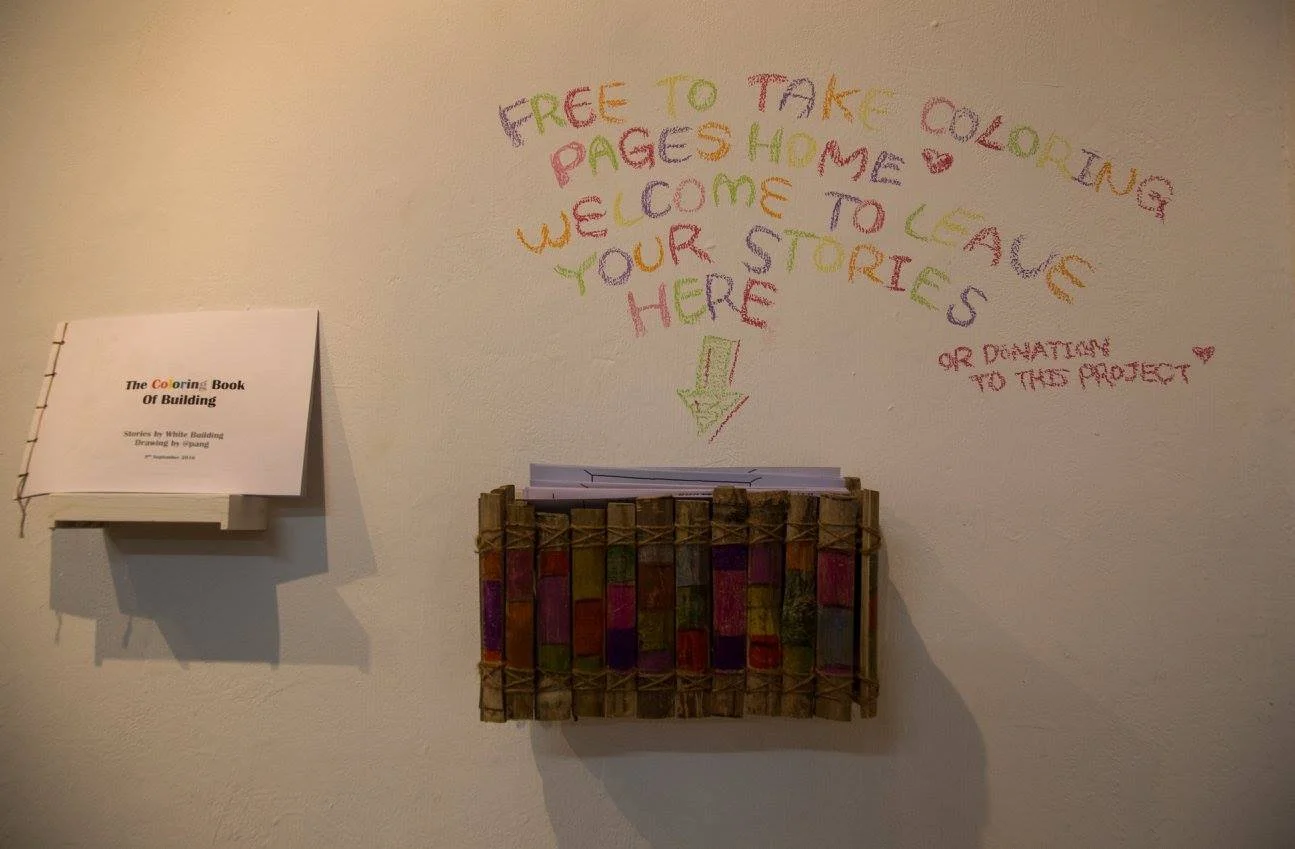 The Coloring Book
Of Building
Stories by White Building
Drawing by @pang
9th September 2016
FREE TO TAKE COLORING
PAGES HOME
WELCOME TO LEAVE
YOUR STORIES
HERE
OR DONATION
TO THIS PROJECT